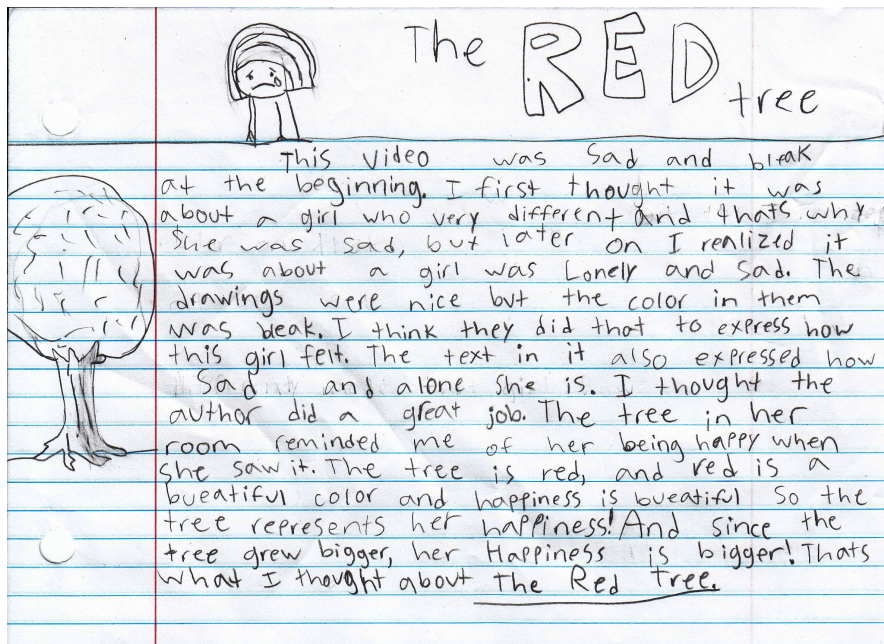 The RED tree
This video was sad and bleak
at the beginning. I first thought it was
about a girl who very different and thats why
She was sad, but later on I realized it
was about a girl was Lonely and sad. The
drawings were nice but the color in them
was bleak. I think they did that to express how
this girl felt. The text in it also expressed how
Sad and alone she is. I thought the
author did a great job. The tree in her
room reminded me of her being happy when
she saw it. The tree is red, and red is a
bueatiful color and happiness is bueatiful So the
tree represents her happiness! And since the
tree grew bigger, her Happiness is bigger! Thats
what I thought about The Red Tree.